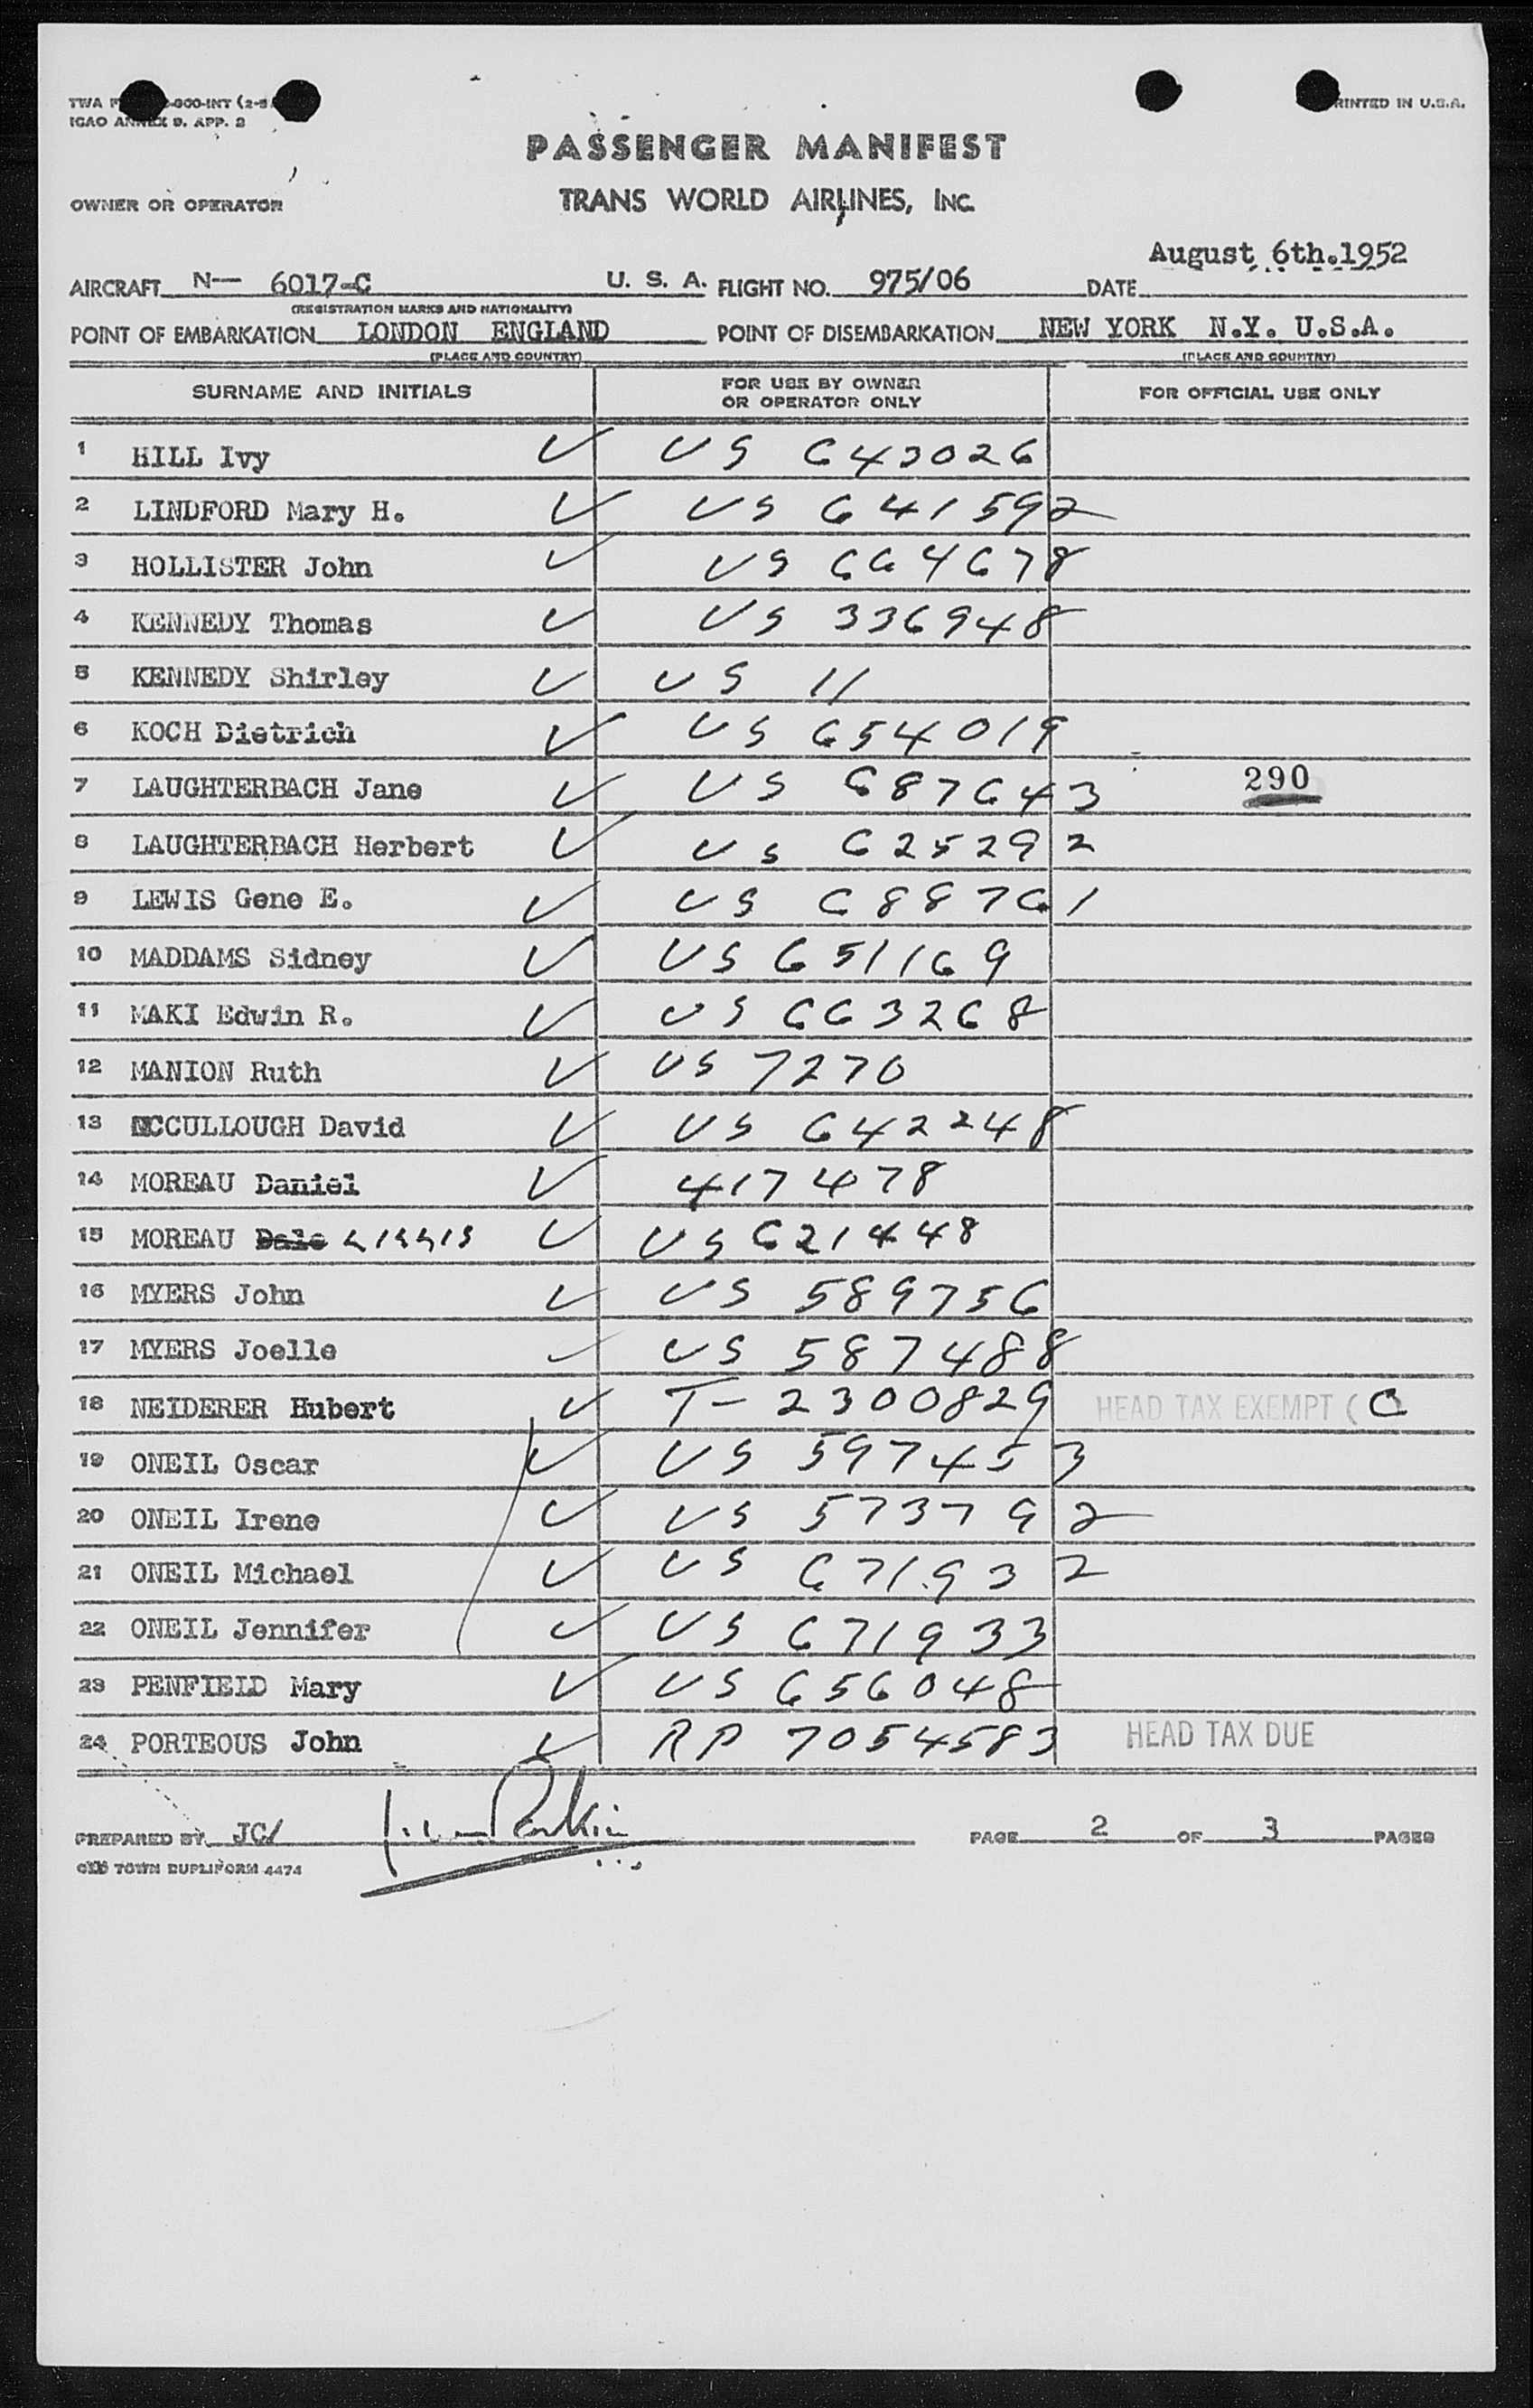 PRINTED IN U.S.A.
ICAO ANNEX 9. APP. 2
PASSENGER MANIFEST
OWNER OR OPERATOR TRANS WORLD AIRLINES, INC.
August 6th.1952
AIRCRAFT N— 6017-C U. S. A. FLIGHT NO. 975/06 DATE
(REGISTRATION MARKS AND NATIONALITY)
POINT OF EMBARKATION LONDON ENGLAND POINT OF DISEMBARKATION NEW YORK N.Y. U.S.A.
(PLACE AND COUNTRY) (PLACE AND COUNTRY)
SURNAME AND INITIALS FOR USE BY OWNER OR OPERATOR ONLY FOR OFFICIAL USE ONLY
1 HILL Ivy ✓ US 643026
2 LINDFORD Mary H. ✓ US 641592
3 HOLLISTER John ✓ US 664678
4 KENNEDY Thomas ✓ US 336948
5 KENNEDY Shirley ✓ US 11
6 KOCH Dietrich ✓ US 654019
7 LAUGHTERBACH Jane ✓ US 687643 290
8 LAUGHTERBACH Herbert ✓ US 625292
9 LEWIS Gene E. ✓ US 688761
10 MADDAMS Sidney ✓ US 651169
11 MAKI Edwin R. ✓ US 663268
12 MANION Ruth ✓ US 7270
13 MCCULLOUGH David ✓ US 642248
14 MOREAU Daniel ✓ 417478
15 MOREAU Dale ✓ US 621448
16 MYERS John ✓ US 589756
17 MYERS Joelle ✓ US 587488
18 NEIDERER Hubert ✓ T- 2300829 HEAD TAX EXEMPT ( C
19 ONEIL Oscar ✓ US 597453
20 ONEIL Irene ✓ US 573792
21 ONEIL Michael ✓ US 671932
22 ONEIL Jennifer ✓ US 671933
23 PENFIELD Mary ✓ US 656048
24 PORTEOUS John ✓ RP 7054583 HEAD TAX DUE
PREPARED BY JC/ PAGE 2 OF 3 PAGES
OLD TOWN DUPLIFORM 4474